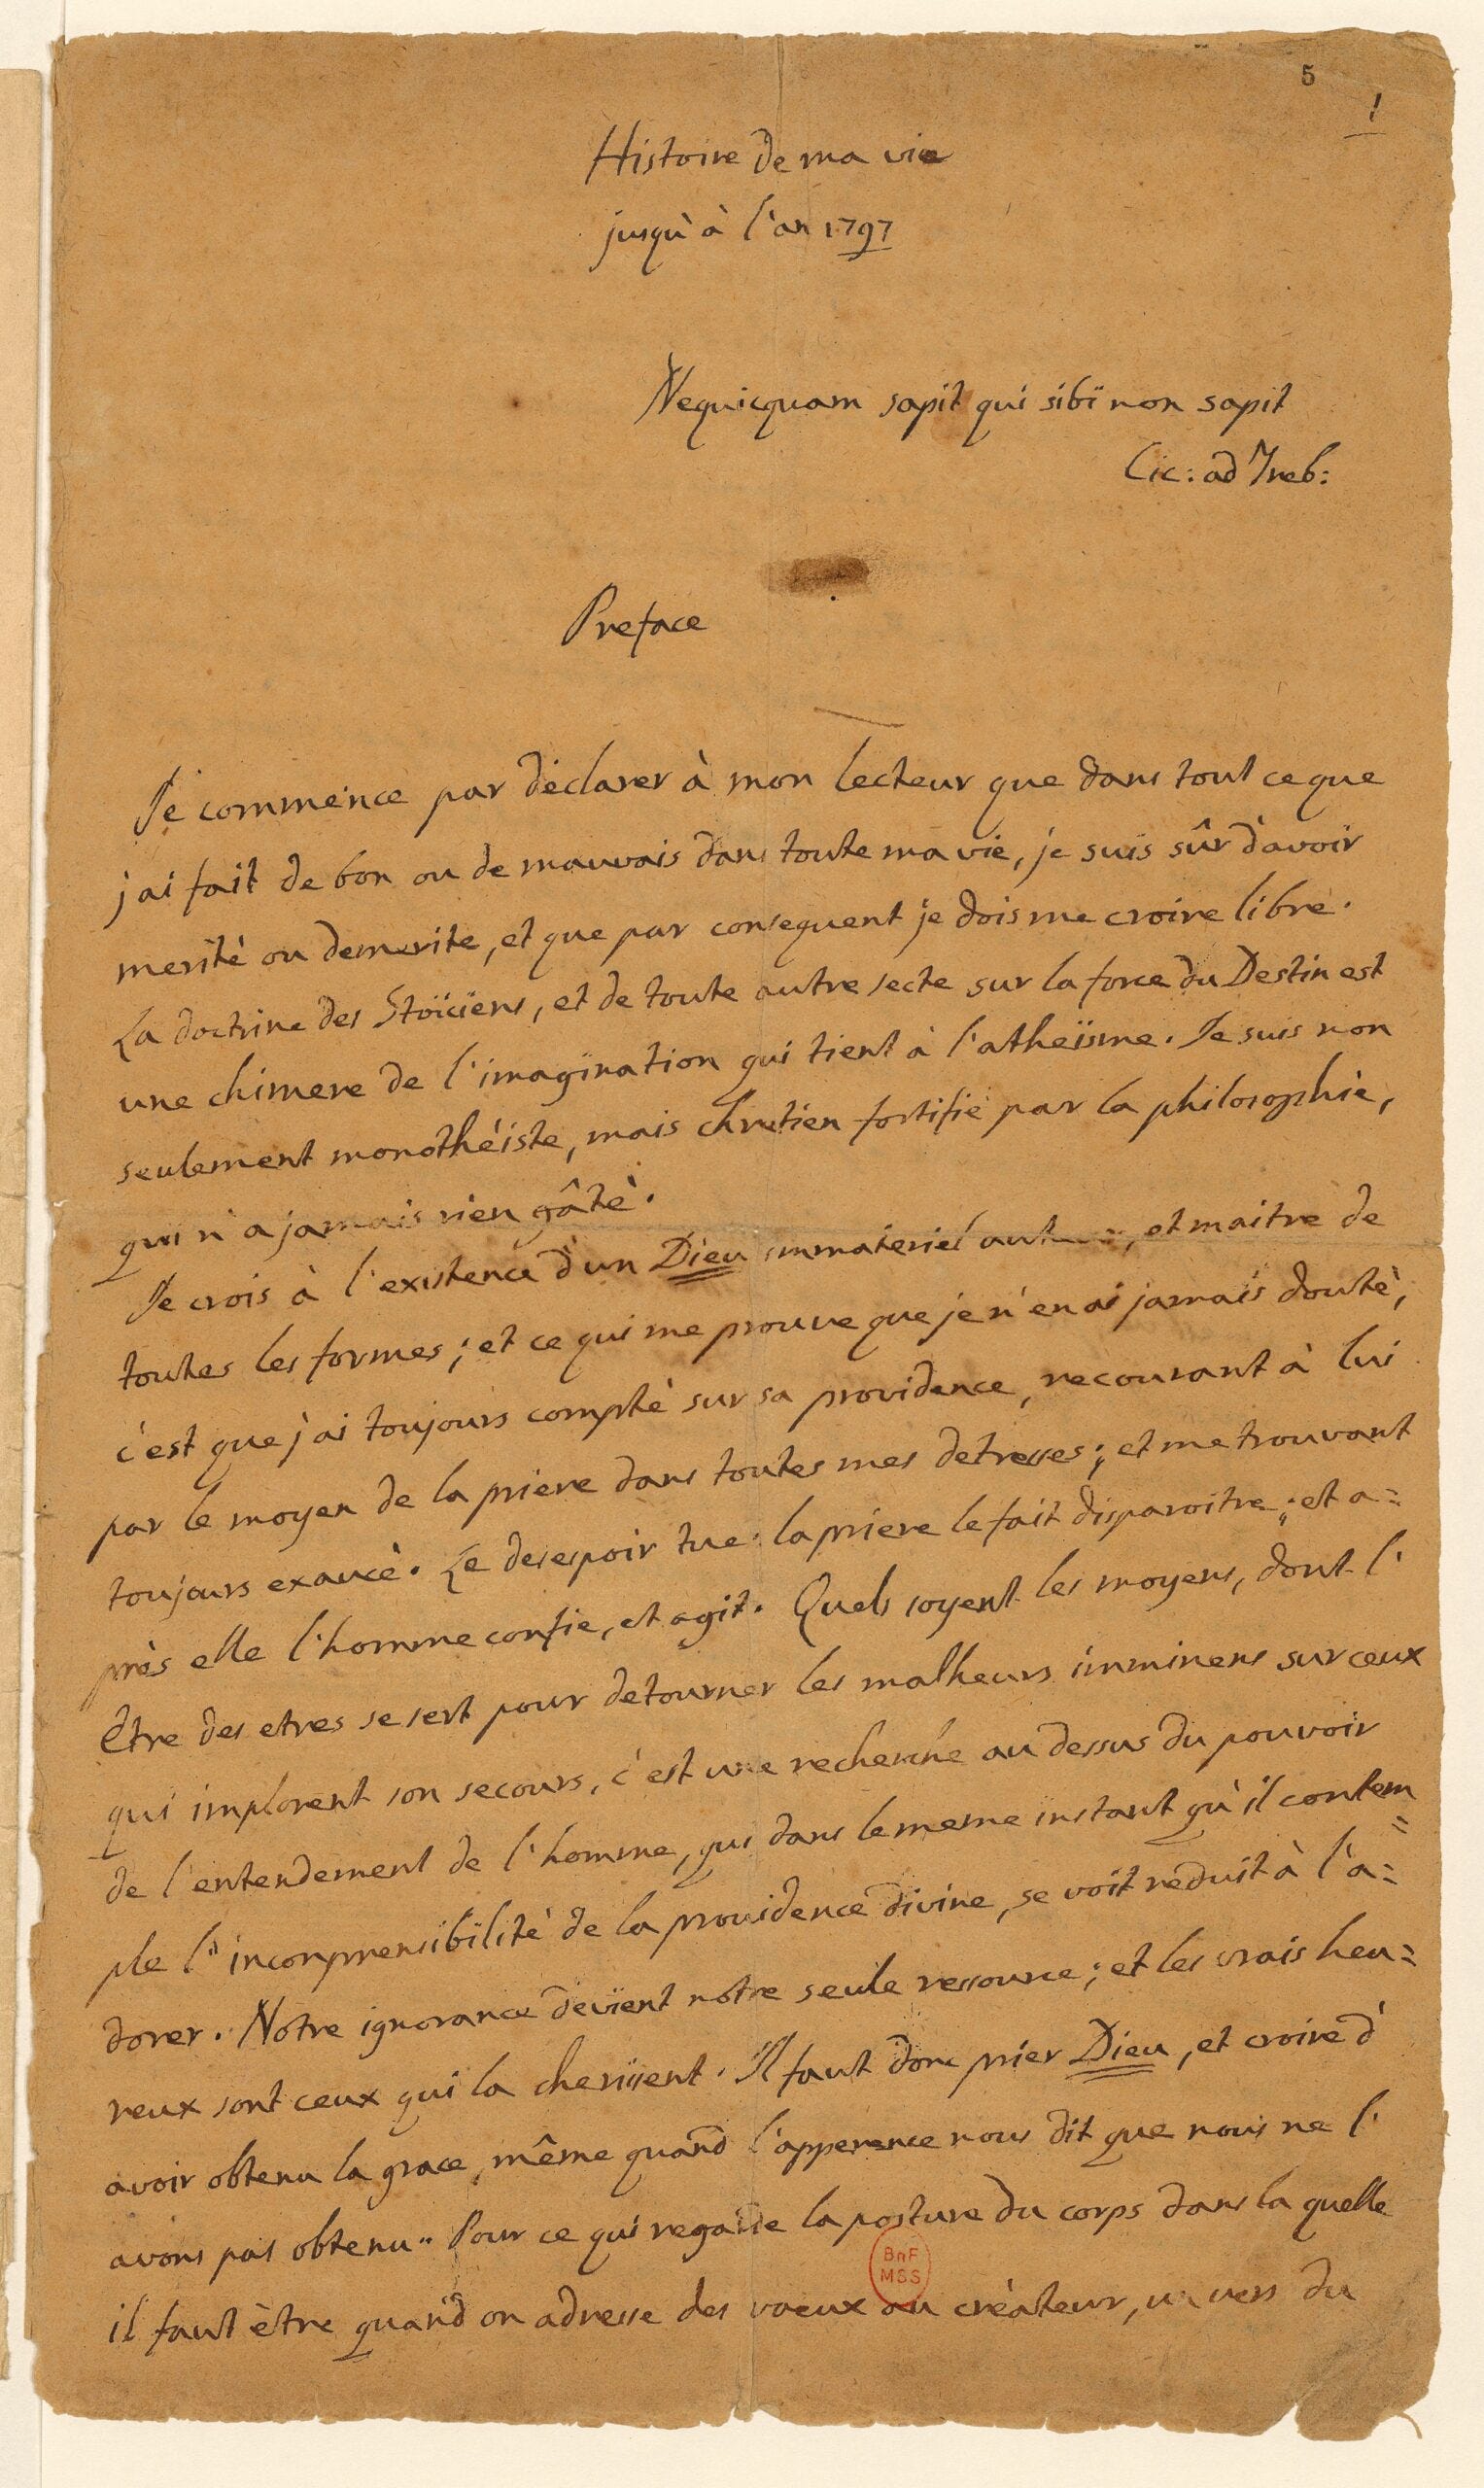 5
1
Histoire de ma vie
jusqu'à l'an 1797
Nequicquam sapit qui sibi non sapit
Cic: ad Treb:
Preface
Je commence par déclarer à mon lecteur que dans tout ce que
j'ai fait de bon ou de mauvais dans toute ma vie, je suis sûr d'avoir
merité ou demerité, et que par consequent je dois me croire libre.
La doctrine des Stoïciens, et de toute autre secte sur la force du Destin est
une chimere de l'imagination qui tient à l'atheïsme. Je suis non
seulement monothéiste, mais chretien fortifié par la philosophie,
qui n'a jamais rien gâté.
Je crois à l'existence d'un Dieu immateriel auteur, et maitre de
toutes les formes; et ce qui me prouve que je n'en ai jamais douté,
c'est que j'ai toujours compté sur sa providence, recourant à lui
par le moyen de la priere dans toutes mes detresses; et me trouvant
toujours exaucé. Le desespoir tue: la priere le fait disparoitre; et a=
près elle l'homme confie, et agit. Quels soyent les moyens, dont l'
Être des etres se sert pour detourner les malheurs imminens sur ceux
qui implorent son secours, c'est une recherche au dessus du pouvoir
de l'entendement de l'homme, qui dans le meme instant qu'il contem=
ple l'incomprensibilité de la providence divine, se voit reduit à l'a=
dorer. Notre ignorance devient notre seule ressource; et les vrais heu=
reux sont ceux qui la cherissent. Il faut donc prier Dieu, et croire d'
avoir obtenu la grace, même quand l'apparence nous dit que nous ne l'
avons pas obtenu. Pour ce qui regarde la posture du corps dans la quelle
il faut être quand on adresse des voeux au créateur, un vers du
BnF
MSS